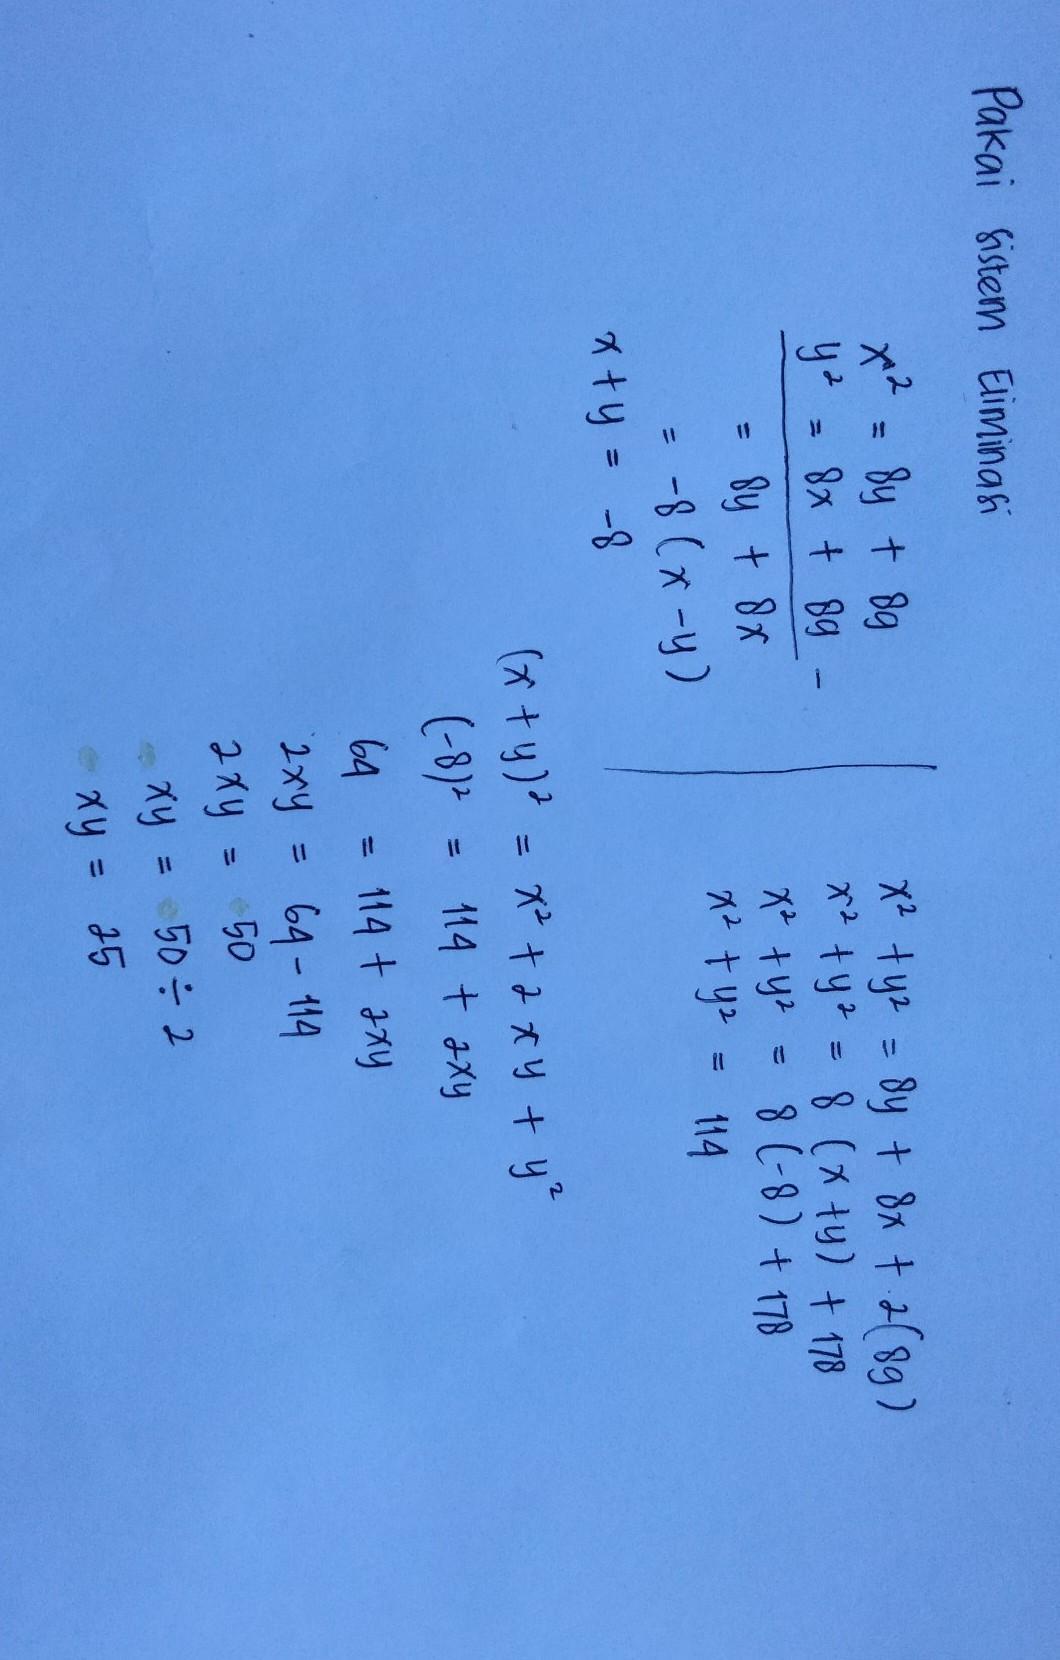 Pakai sistem Eliminasi
x² = 8y + 89
y² = 8x + 89 -
= 8y + 8x
= -8 (x - y)
x + y = -8
x² + y² = 8y + 8x + 2(89)
x² + y² = 8 (x + y) + 178
x² + y² = 8 (-8) + 178
x² + y² = 114
(x + y)² = x² + 2xy + y²
(-8)² = 114 + 2xy
64 = 114 + 2xy
2xy = 64 - 114
2xy = 50
xy = 50 ÷ 2
xy = 25